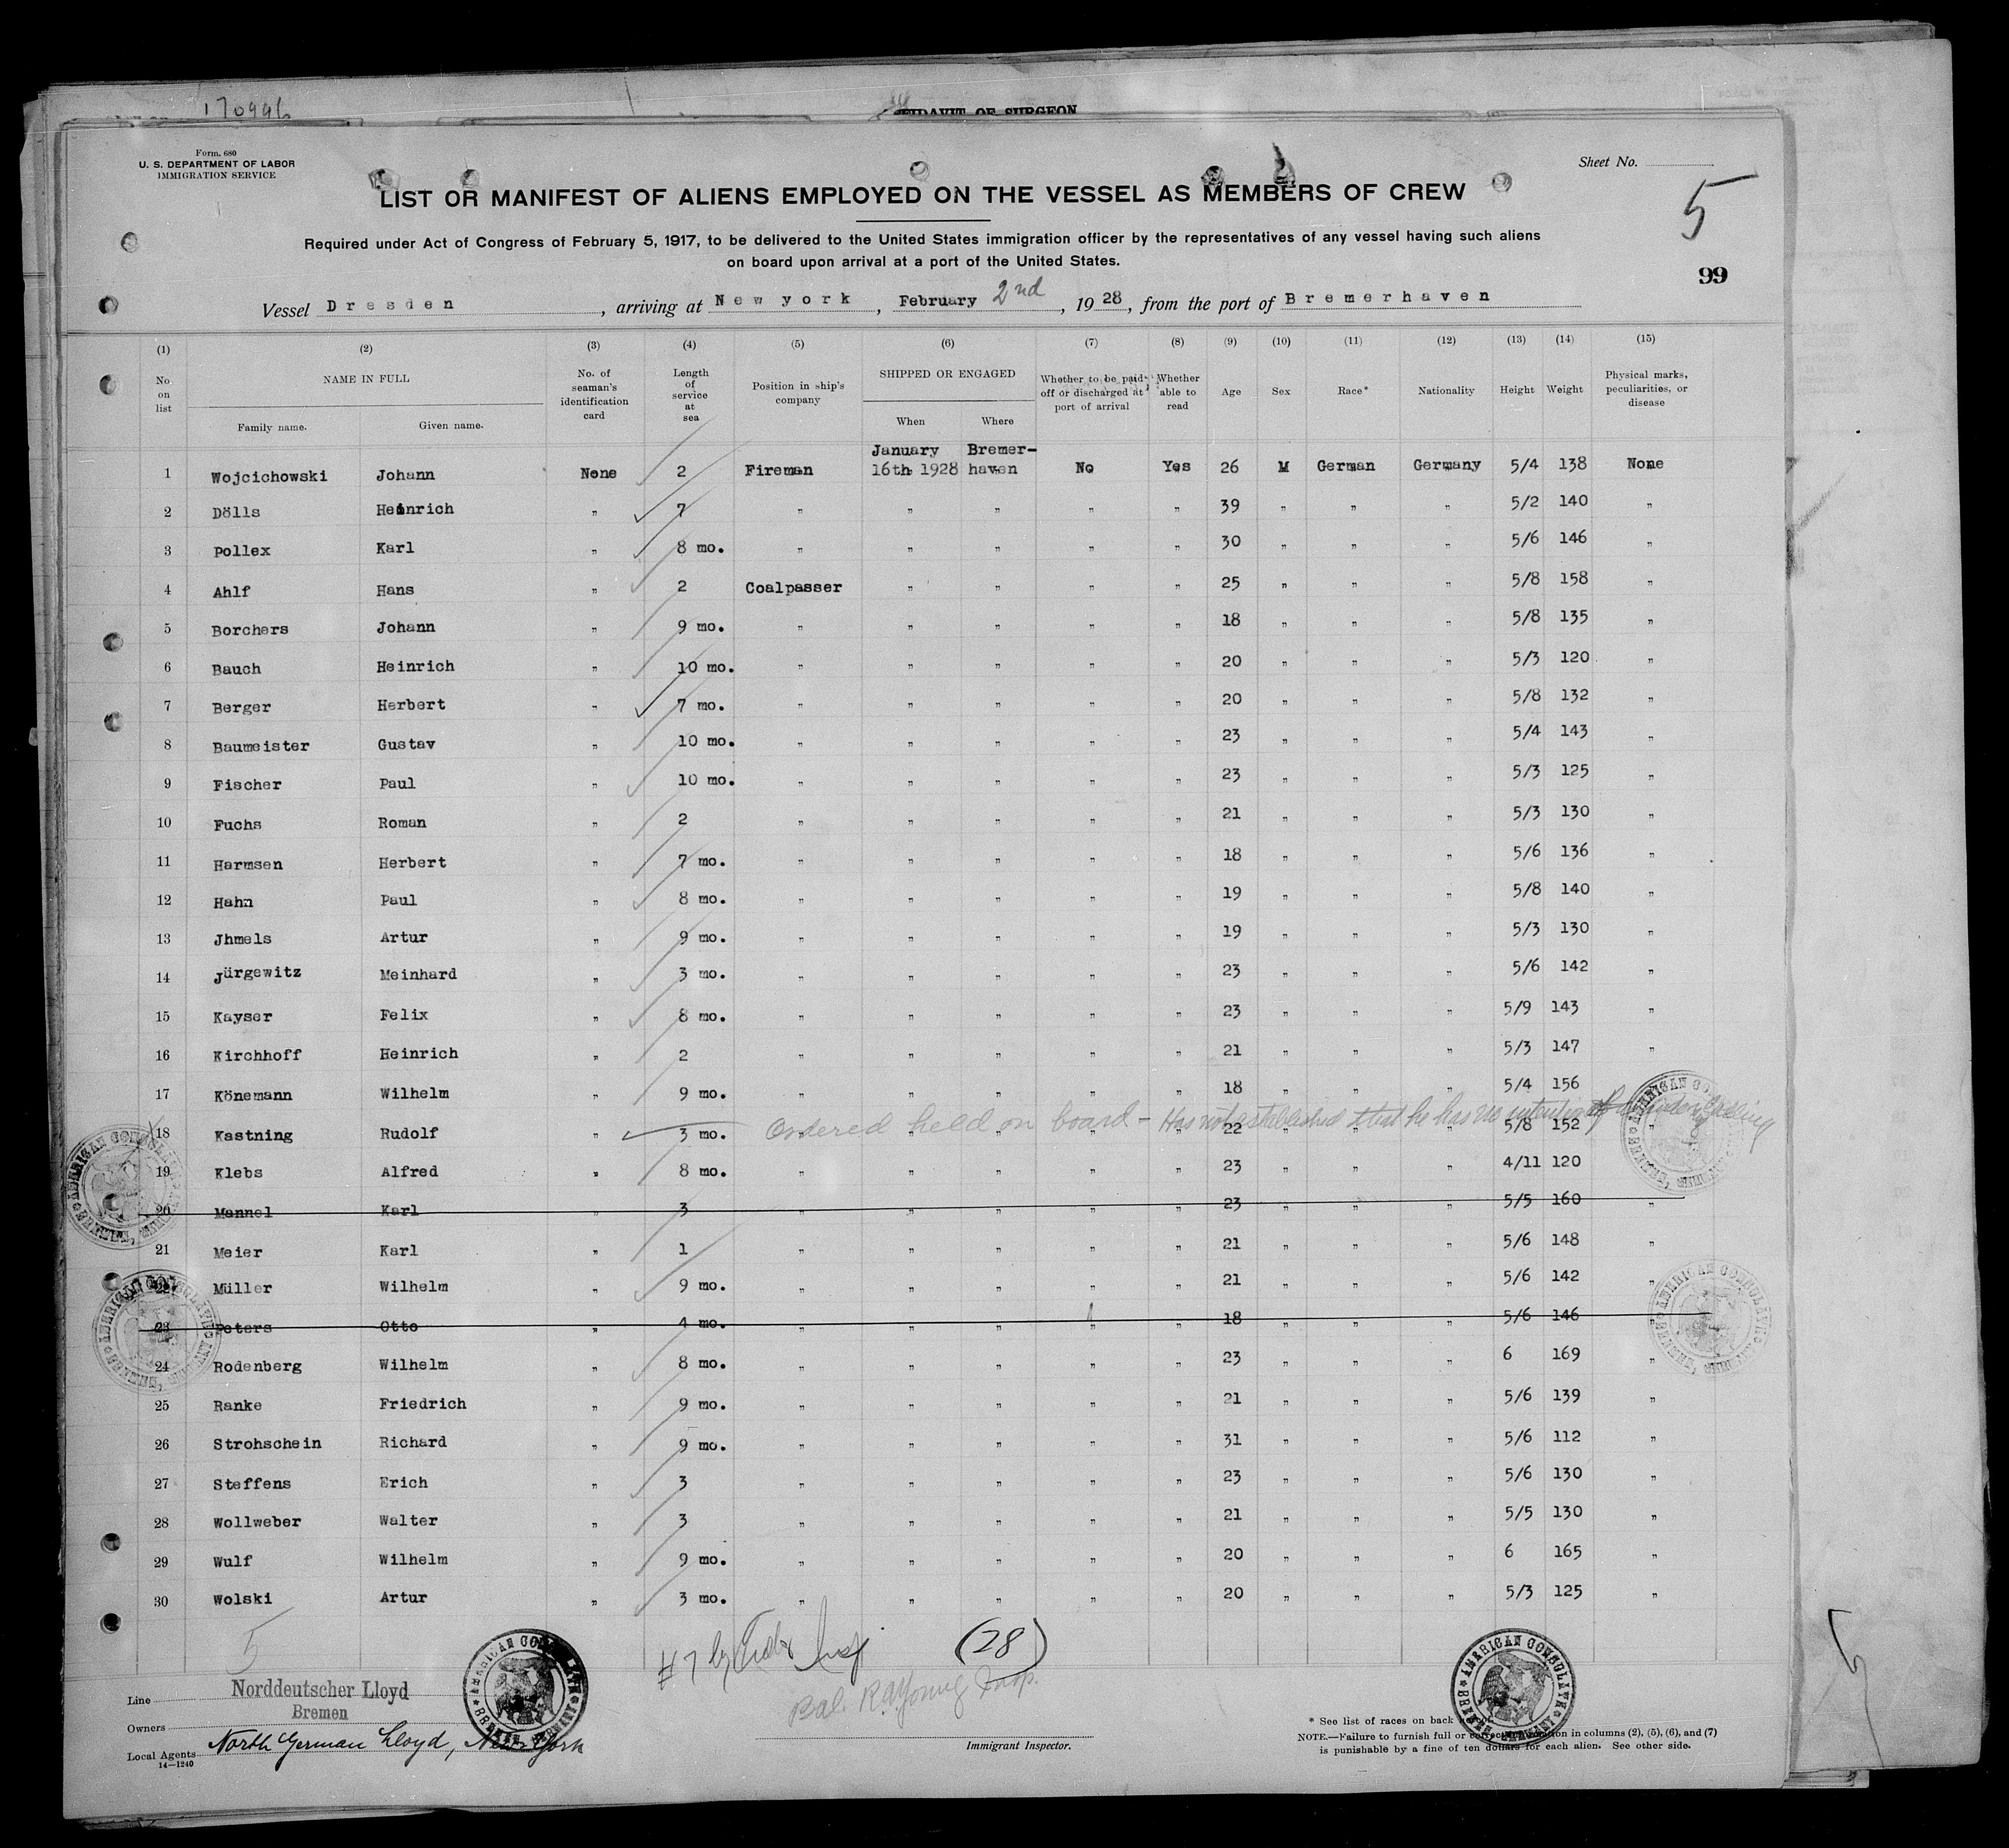 170996
AFFIDAVIT OF SURGEON
Form. 680
U. S. DEPARTMENT OF LABOR
IMMIGRATION SERVICE
Sheet No.
5
LIST OR MANIFEST OF ALIENS EMPLOYED ON THE VESSEL AS MEMBERS OF CREW
Required under Act of Congress of February 5, 1917, to be delivered to the United States immigration officer by the representatives of any vessel having such aliens
on board upon arrival at a port of the United States.
99
Vessel Dresden, arriving at New york, February 2nd, 1928, from the port of Bremerhaven
(1) (2) (3) (4) (5) (6) (7) (8) (9) (10) (11) (12) (13) (14) (15)
No on list NAME IN FULL Family name. Given name. No. of seaman's identification card Length of service at sea Position in ship's company SHIPPED OR ENGAGED When Where Whether to be paid off or discharged at port of arrival Whether able to read Age Sex Race* Nationality Height Weight Physical marks, peculiarities, or disease
January Bremer-
1 Wojcichowski Johann None 2 Fireman 16th 1928 haven No Yes 26 M German Germany 5/4 138 None
2 Dölls Heinrich " 7 " " " " " 39 " " " 5/2 140 "
3 Pollex Karl " 8 mo. " " " " " 30 " " " 5/6 146 "
4 Ahlf Hans " 2 Coalpasser " " " " 25 " " " 5/8 158 "
5 Borchers Johann " 9 mo. " " " " " 18 " " " 5/8 135 "
6 Bauch Heinrich " 10 mo. " " " " " 20 " " " 5/3 120 "
7 Berger Herbert " 7 mo. " " " " " 20 " " " 5/8 132 "
8 Baumeister Gustav " 10 mo. " " " " " 23 " " " 5/4 143 "
9 Fischer Paul " 10 mo. " " " " " 23 " " " 5/3 125 "
10 Fuchs Roman " 2 " " " " " 21 " " " 5/3 130 "
11 Harmsen Herbert " 7 mo. " " " " " 18 " " " 5/6 136 "
12 Hahn Paul " 8 mo. " " " " " 19 " " " 5/8 140 "
13 Jhmels Artur " 9 mo. " " " " " 19 " " " 5/3 130 "
14 Jürgewitz Meinhard " 3 mo. " " " " " 23 " " " 5/6 142 "
15 Kayser Felix " 8 mo. " " " " " 23 " " " 5/9 143 "
16 Kirchhoff Heinrich " 2 " " " " " 21 " " " 5/3 147 "
17 Könemann Wilhelm " 9 mo. " " " " " 18 " " " 5/4 156 "
Ordered held on board - Has not established that he has no intention of
18 Kastning Rudolf " 3 mo. " " " " " 22 " " " 5/8 152 "
19 Klebs Alfred " 8 mo. " " " " " 23 " " " 4/11 120
20 Mennel Karl " 3 " " " " " 23 " " " 5/5 160 "
21 Meier Karl " 1 " " " " " 21 " " " 5/6 148 "
22 Müller Wilhelm " 9 mo. " " " " " 21 " " " 5/6 142 "
23 Peters Otto " 4 mo. " " " " " 18 " " " 5/6 146 "
24 Rodenberg Wilhelm " 8 mo. " " " " " 23 " " " 6 169 "
25 Ranke Friedrich " 9 mo. " " " " " 21 " " " 5/6 139 "
26 Strohschein Richard " 9 mo. " " " " " 31 " " " 5/6 112 "
27 Steffens Erich " 3 " " " " " 23 " " " 5/6 130 "
28 Wollweber Walter " 3 " " " " " 21 " " " 5/5 130 "
29 Wulf Wilhelm " 9 mo. " " " " " 20 " " " 6 165 "
30 Wolski Artur " 3 mo. " " " " " 20 " " " 5/3 125 "
5
#7 by Insp (28)
Bal. R.A. Young Insp.
Line Norddeutscher Lloyd
Bremen
Owners
Local Agents North German Lloyd, New York
14—1240
Immigrant Inspector.
* See list of races on back
NOTE.—Failure to furnish full or correct information in columns (2), (5), (6), and (7)
is punishable by a fine of ten dollars for each alien. See other side.
AMERICAN CONSULATE
BREMEN